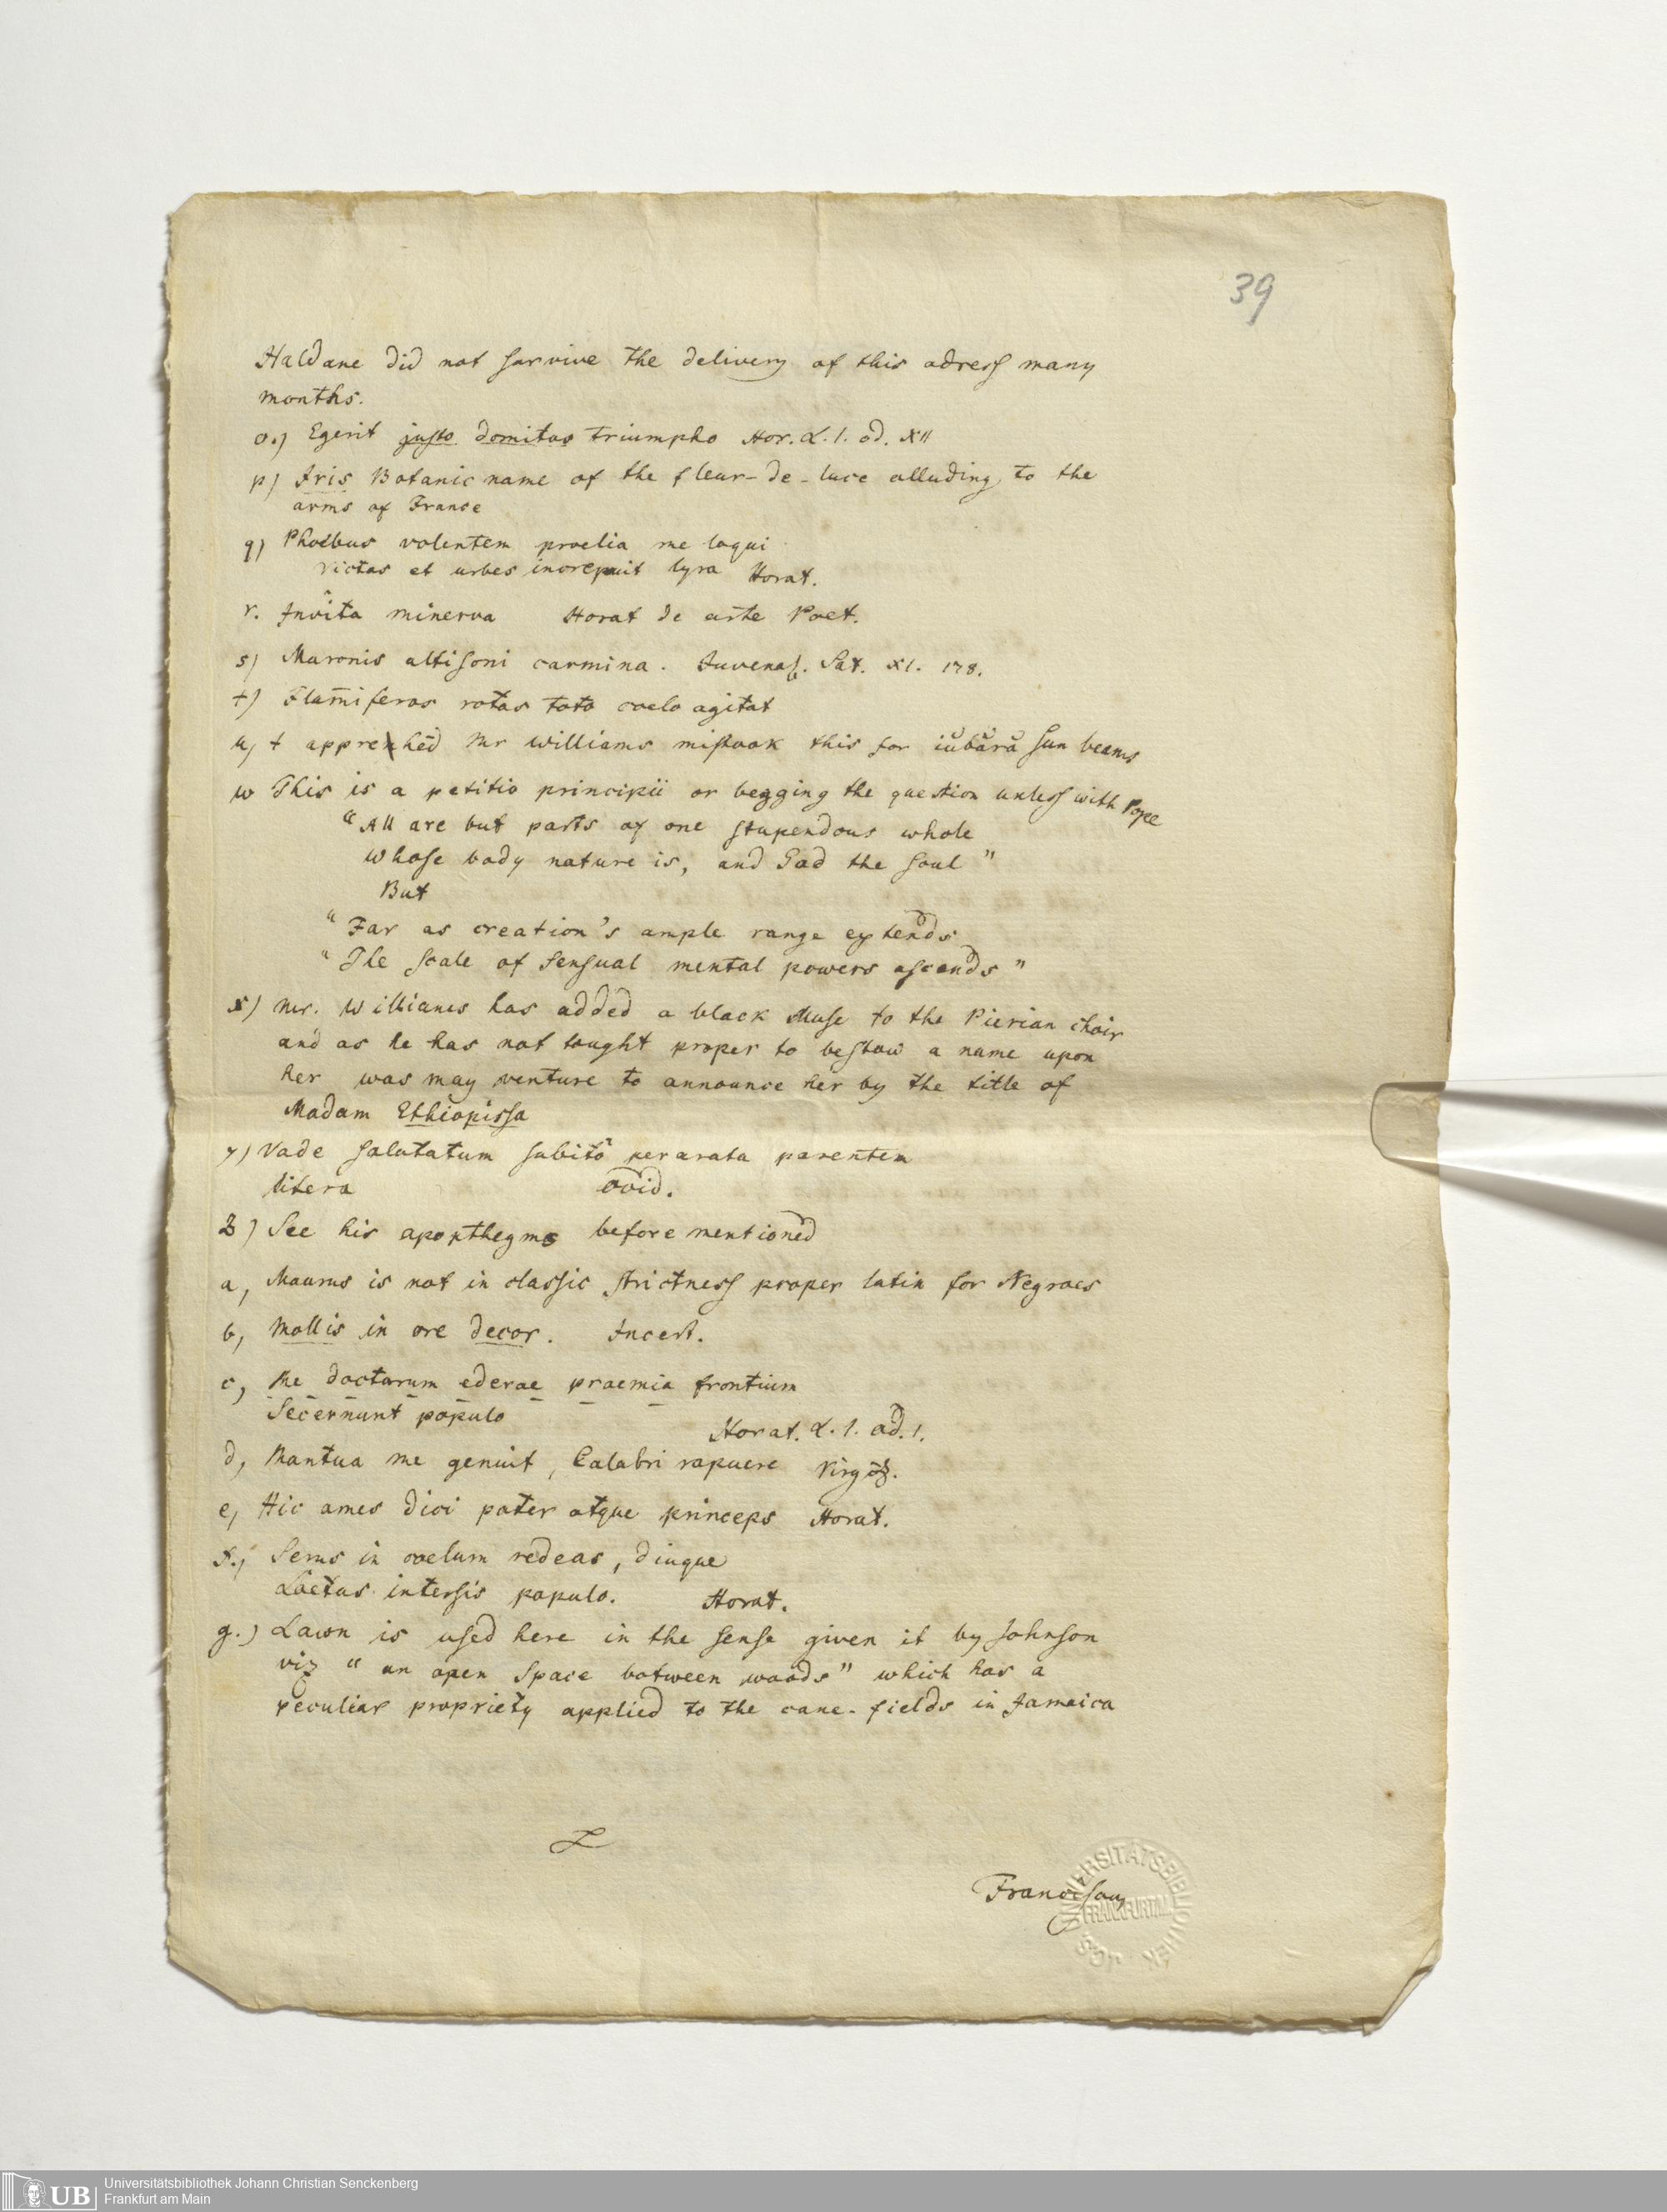 39
Haldane did not survive the delivery of this adress many
months.
o.) Egerit justo domitos triumpho Hor. L. 1. od. XII
p) Iris Botanic name of the fleur-de-luce alluding to the
arms of France
q) Phoebus volentem proelia me loqui
victas et urbes increpuit lyra Horat.
r. Invitâ minerva Horat de arte Poet.
s) Maronis altisoni carmina. Juvenal. Sat. XI. 178.
t) Flam̄iferas rotas toto coelo agitat
u, I apprehēd Mr Williams mistook this for iŭbără Sun beams
w This is a petitio principii or begging the question unless with Pope
“All are but parts of one stupendous whole
Whose body nature is, and God the soul”
But
“Far as creation's ample range extends
“The scale of sensual mental powers ascends”
x) Mr. Williams has added a black Muse to the Pierian choir
and as he has not tought proper to bestow a name upon
her was may venture to announce her by the title of
Madam Ethiopissa
y) Vade salutatum subitô perarata parentem
litera Ovid.
Z) See his apopthegms before mentioned
a, Maurus is not in classic strictness proper latin for Negroes
b, Mollis in ore decor. Incert.
c, Me doctarum ederae praemia frontium
Secernunt populo
Horat. L. 1. od. 1.
d, Mantua me genuit, Calabri rapuere Virg.
e, Hic ames dici pater atque princeps Horat.
f., Serus in coelum redeas, diuque
Laetus intersis populo. Horat.
g.) Lawn is used here in the sense given it by Johnson
viz “an open space between woods” which has a
peculiar propriety applied to the cane-fields in Jamaica
Franc
UNIVERSITÄTSBIBLIOTHEK
FRANKFURT/M.
JCS
UB
Universitätsbibliothek Johann Christian Senckenberg
Frankfurt am Main